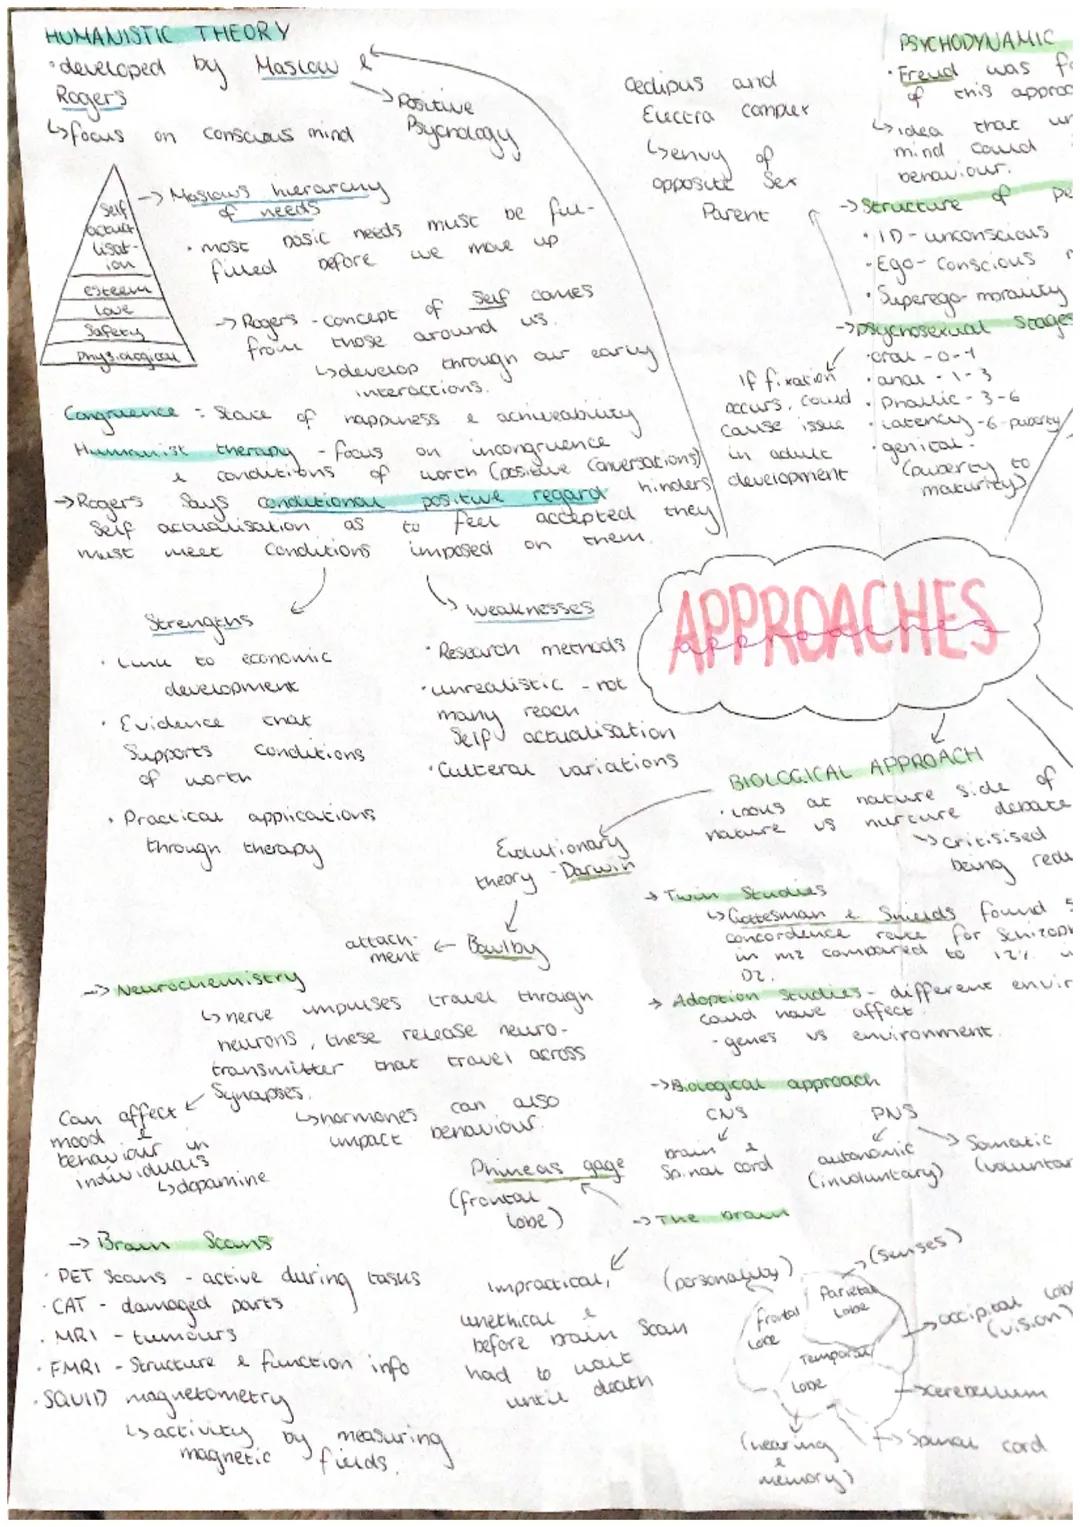 HUMANISTIC THEORY
• developed by Maslow &
Rogers
↳ focus on conscious mind
→ Positive
Psychology
→ Maslows hierarchy
of needs
• most basic needs must be ful-
filled before we move up
Self
actual
lisat-
ion
esteem
Love
Safety
Physiological
→ Rogers - concept of Self comes
from those around us.
↳ develop through our early
interactions.
Congruence = State of happiness & achieveability
Humanist therapy - focus on incongruence
& conditions of worth (positive conversations)
→ Rogers says conditional positive regard hinders
Self actualisation as to feel accepted they
must meet conditions imposed on them.
Strengths
• Link to economic
development
• Evidence that
Supports conditions
of worth
• Practical applications
through therapy
weaknesses
• Research methods
• unrealistic - not
many reach
Self actualisation
• Culteral variations
Oedipus and
Electra complex
↳ envy of
opposite Sex
Parent
PSYCHODYNAMIC
• Freud was
of this approa
↳ idea that un
mind could
behaviour.
→ Structure of pe
• ID - unconscious
• Ego - Conscious
• Superego - morality
→ psychosexual Stages
• oral - 0-1
• anal - 1-3
• Phallic - 3-6
• Latency - 6 - puberty
• genital -
(puberty to
maturity)
If fixation
occurs, could
cause issue
in adult
development
APPROACHES
approaches
BIOLOGICAL APPROACH
• Looks at nature side of
nature vs nurture debate
↳ critisised
being redu
Evolutionary
theory - Darwin
Bowlby
attach-
ment
→ Twin Studies
↳ Gottesman & Shields found 5
concordence rate for Schizoph
in MZ compared to 12%
DZ.
→ Adoption Studies - different envir
could have affect.
- genes vs environment.
→ Neurochemistry
↳ nerve impulses travel through
neurons, these release neuro-
transmitter that travel across
Synapses.
↳ hormones can also
impact behaviour.
Can affect
mood &
behaviour in
individuals
↳ dopamine
→ Biological approach
CNS
brain &
Spinal cord
PNS
autonomic
(involuntary)
Somatic
(voluntar
→ The brain
Phineas gage
(frontal
lobe)
→ Brain Scans
• PET Scans - active during tasks
• CAT - damaged parts
• MRI - tumours
• FMRI - Structure & function info
• SQUID magnetometry
↳ activity by measuring
magnetic fields.
impractical,
unethical &
before brain Scan
had to wait
until death
(personality)
frontal
Lobe
Parietal
Lobe
(senses)
Temporal
Lobe
occipital lob
(vision)
cerebellum
Spinal cord
(hearing
&
memory)